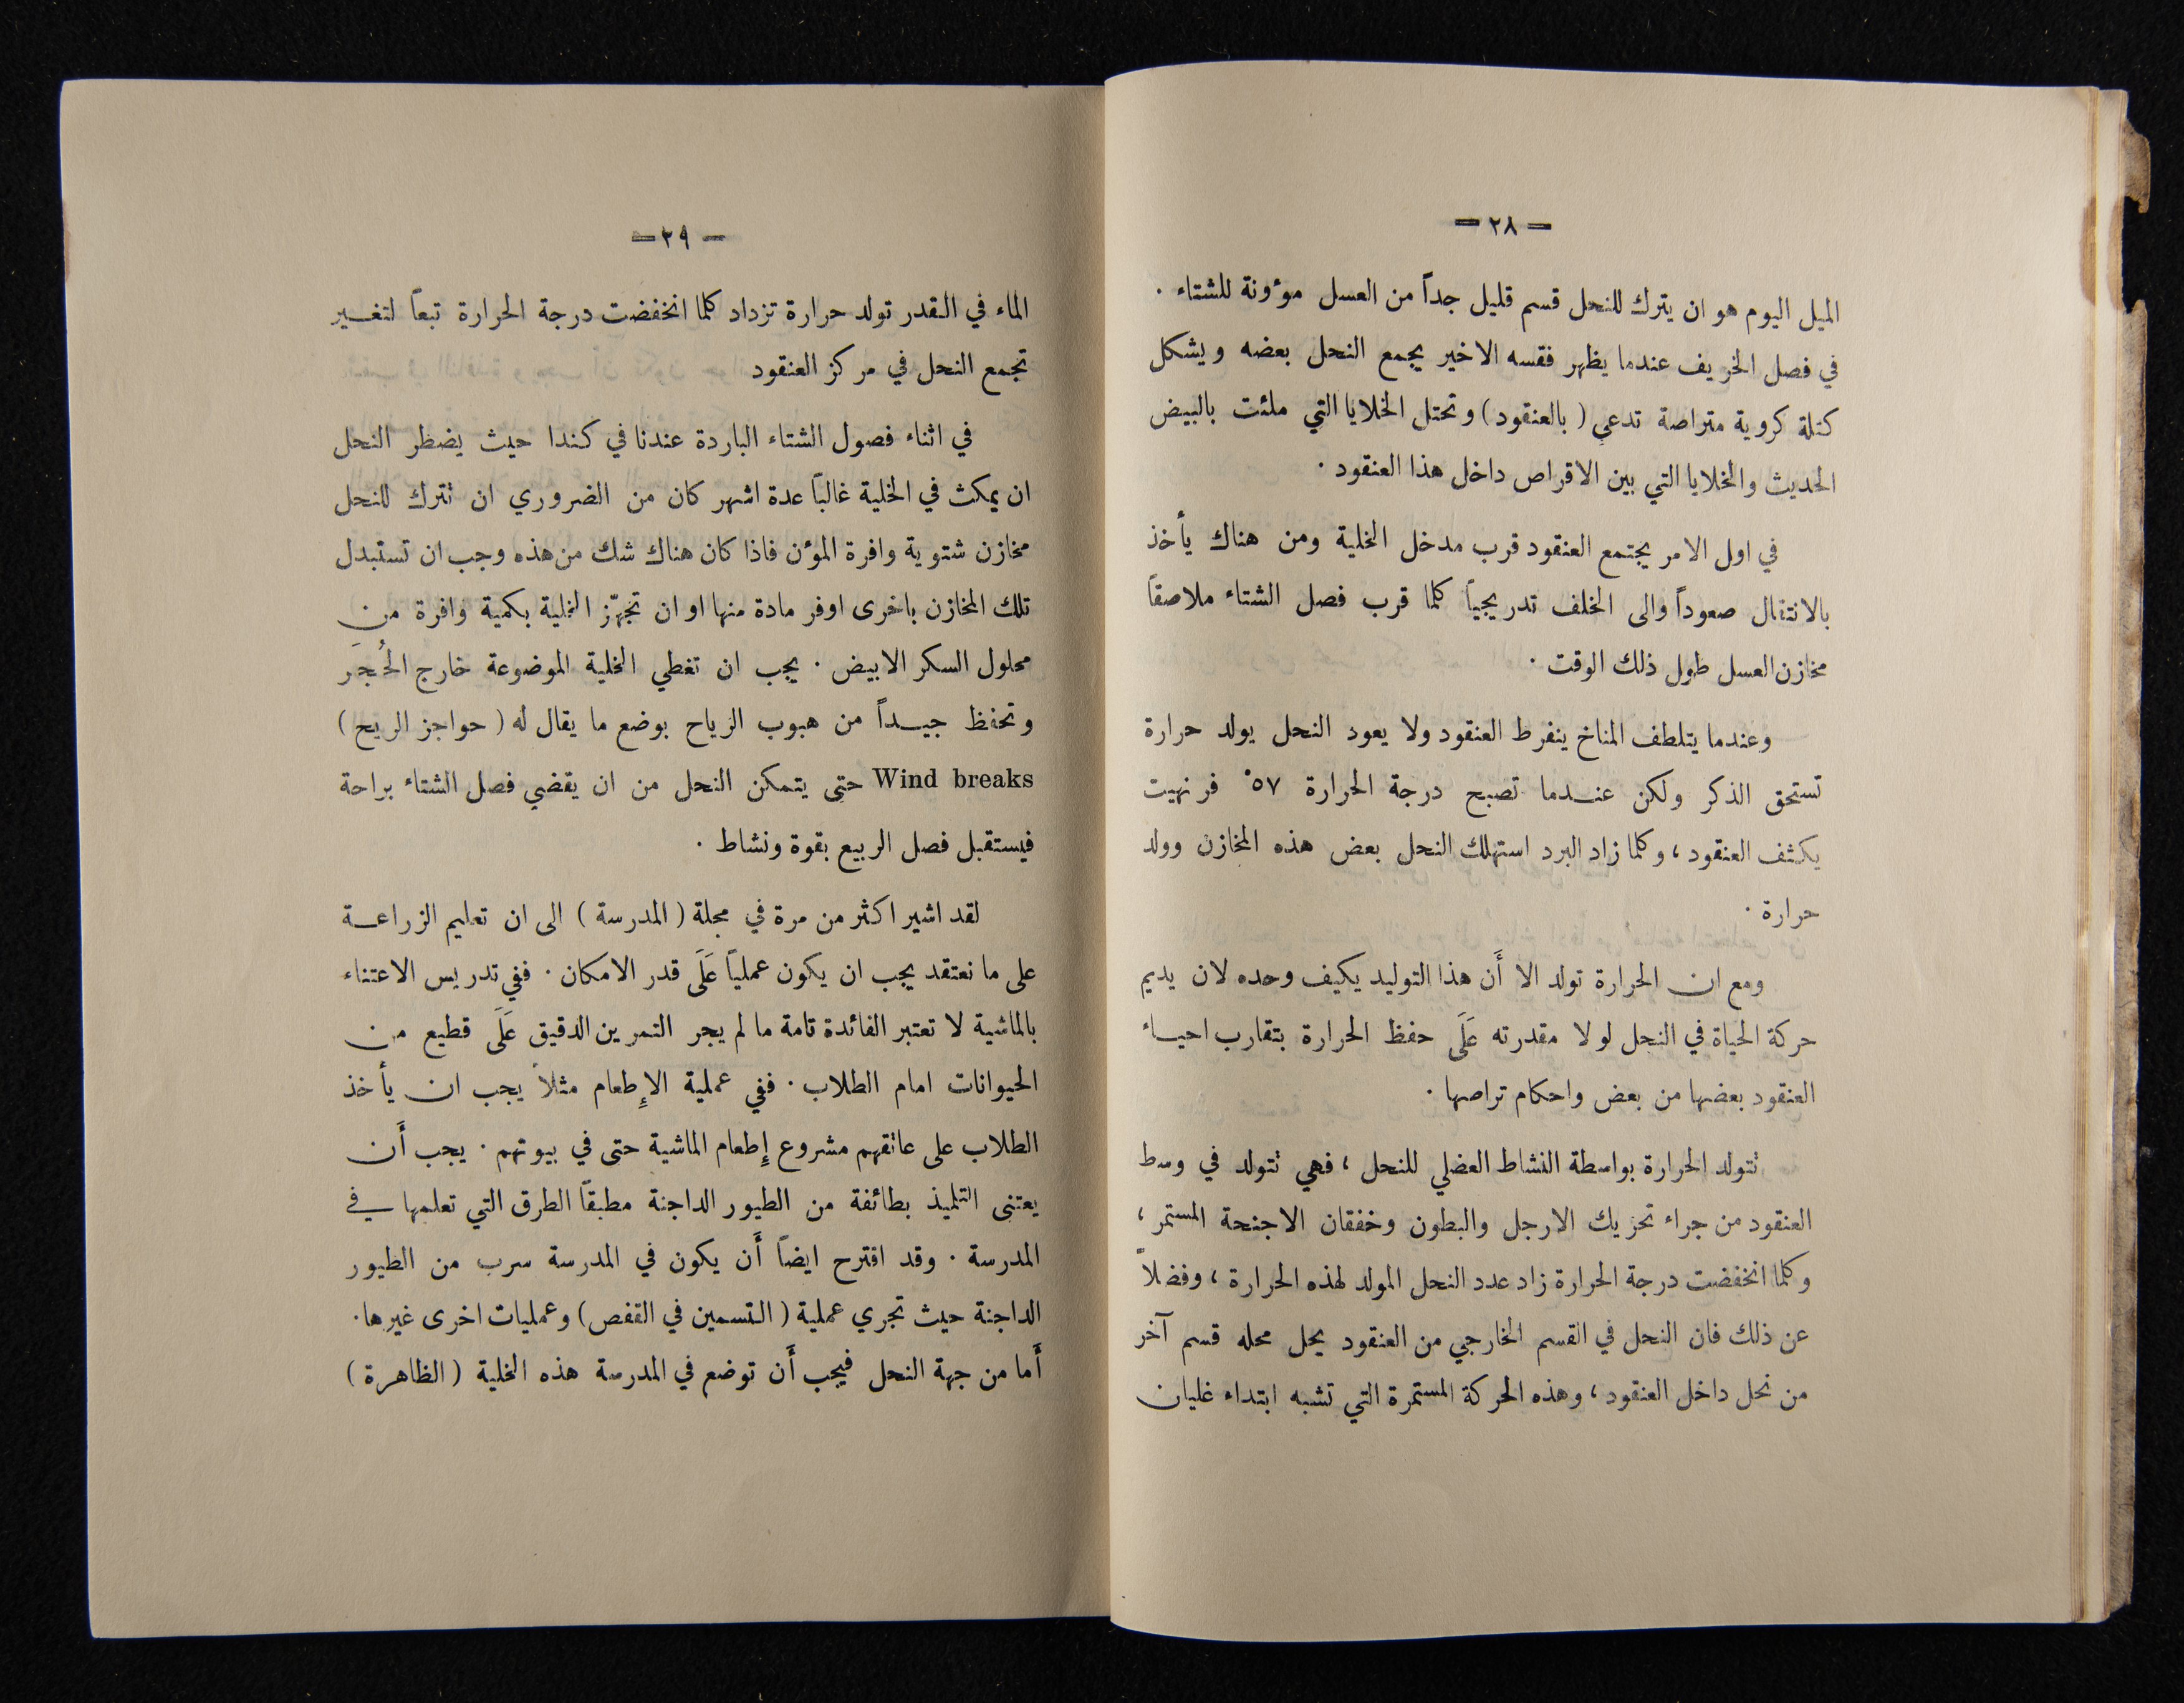 — ٢٨ —
الميل اليوم هو ان يترك للنحل قسم قليل جداً من العسل موٴونة للشتاء .
في فصل الخريف عندما يظهر فقسه الاخير يجمع النحل بعضه ويشكل
كتلة كروية متراصة تدعى ( بالعنقود ) وتحتل الخلايا التي ملئت بالبيض
الحديث والخلايا التي بين الاقراص داخل هذا العنقود .
في اول الامر يجتمع العنقود قرب مدخل الخلية ومن هناك يأخذ
بالانتقال صعوداً والى الخلف تدريجياً كلما قرب فصل الشتاء ملاصقاً
مخازن العسل طول ذلك الوقت .
وعندما يتلطف المناخ ينفرط العنقود ولا يعود النحل يولد حرارة
تستحق الذكر ولكن عندما تصبح درجة الحرارة ٥٧° فرنهيت
يكثف العنقود ، وكلما زاد البرد استهلك النحل بعض هذه المخازن وولد
حرارة .
ومع ان الحرارة تولد الا أَن هذا التوليد يكيف وحده لان يديم
حركة الحياة في النحل لولا مقدرته عَلَى حفظ الحرارة بتقارب احياء
العنقود بعضها من بعض واحكام تراصها .
تتولد الحرارة بواسطة النشاط العضلي للنحل ، فهي تتولد في وسط
العنقود من جراء تحريك الارجل والبطون وخفقان الاجنحة المستمر ،
وكلما انخفضت درجة الحرارة زاد عدد النحل المولد لهذه الحرارة ، وفضلاً
عن ذلك فان النحل في القسم الخارجي من العنقود يحل محله قسم آخر
من نحل داخل العنقود ، وهذه الحركة المستمرة التي تشبه ابتداء غليان
— ٢٩ —
الماء في القدر تولد حرارة تزداد كلما انخفضت درجة الحرارة تبعاً لتغيير
تجمع النحل في مركز العنقود
في اثناء فصول الشتاء الباردة عندنا في كندا حيث يضطر النحل
ان يمكث في الخلية غالباً عدة اشهر كان من الضروري ان تترك للنحل
مخازن شتوية وافرة المؤن فاذا كان هناك شك من هذه وجب ان تستبدل
تلك المخازن باخرى اوفر مادة منها او ان تجهّز الخلية بكمية وافرة من
محلول السكر الابيض . يجب ان تغطي الخلية الموضوعة خارج الحُجَر
وتحفظ جيداً من هبوب الرياح بوضع ما يقال له ( حواجز الريح )
Wind breaks حتى يتمكن النحل من ان يقضي فصل الشتاء براحة
فيستقبل فصل الربيع بقوة ونشاط .
لقد اشير اكثر من مرة في مجلة ( المدرسة ) الى ان تعليم الزراعة
على ما نعتقد يجب ان يكون عملياً عَلَى قدر الامكان . ففي تدريس الاعتناء
بالماشية لا تعتبر الفائدة تامة ما لم يجر التمرين الدقيق عَلَى قطيع من
الحيوانات امام الطلاب . ففي عملية الإِطعام مثلاً يجب ان يأخذ
الطلاب على عاتقهم مشروع إِطعام الماشية حتى في بيوتهم . يجب أَن
يعتنى التلميذ بطائفة من الطيور الداجنة مطبقاً الطرق التي تعلمها في
المدرسة . وقد اقترح ايضاً أَن يكون في المدرسة سرب من الطيور
الداجنة حيث تجري عملية ( التسمين في القفص ) وعمليات اخرى غيرها .
أَما من جهة النحل فيجب أَن توضع في المدرسة هذه الخلية ( الظاهرة )